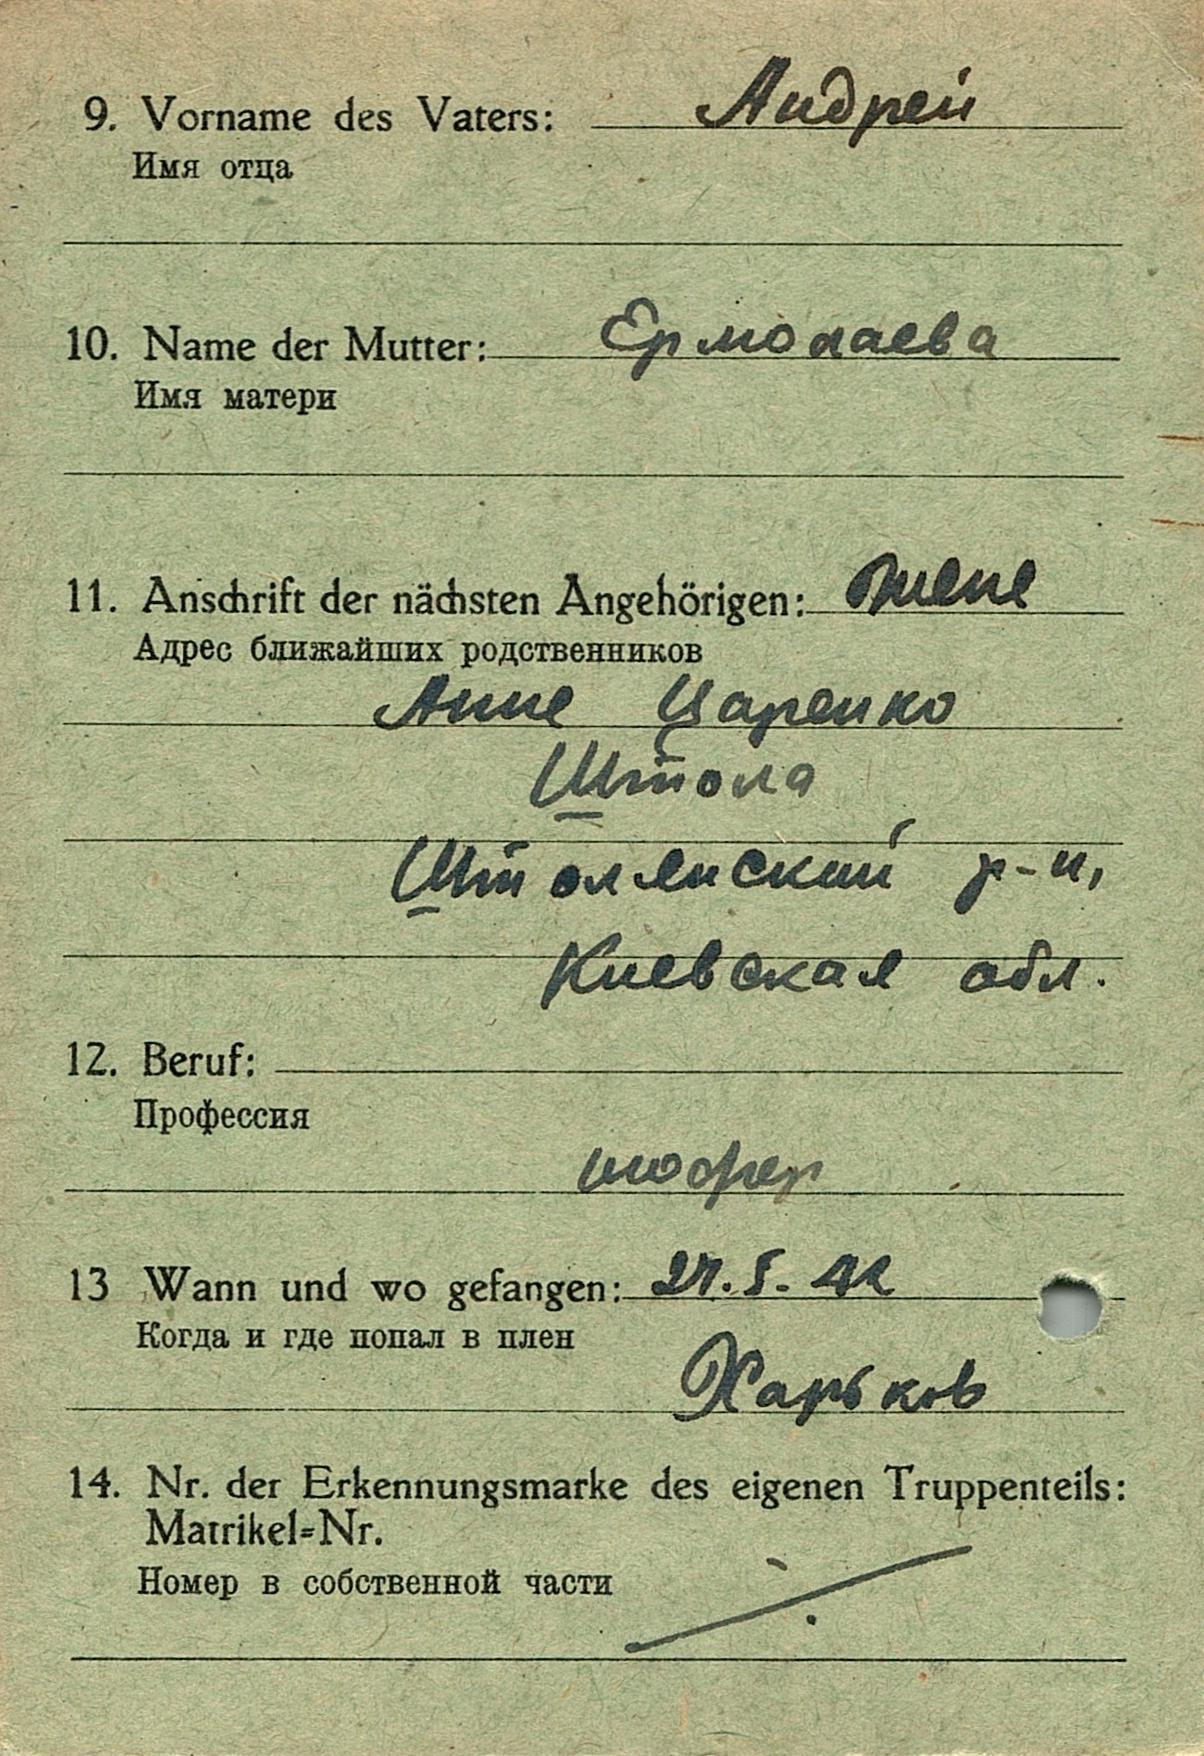 9. Vorname des Vaters: Андрей
Имя отца
10. Name der Mutter: Ермолаева
Имя матери
11. Anschrift der nächsten Angehörigen: жене
Адрес ближайших родственников
Анне Царенко
Штола
Штолянский р-н,
Киевская обл.
12. Beruf:
Профессия
шофер
13 Wann und wo gefangen: 27.5.42
Когда и где попал в плен
Харьков
14. Nr. der Erkennungsmarke des eigenen Truppenteils:
Matrikel=Nr.
Номер в собственной части